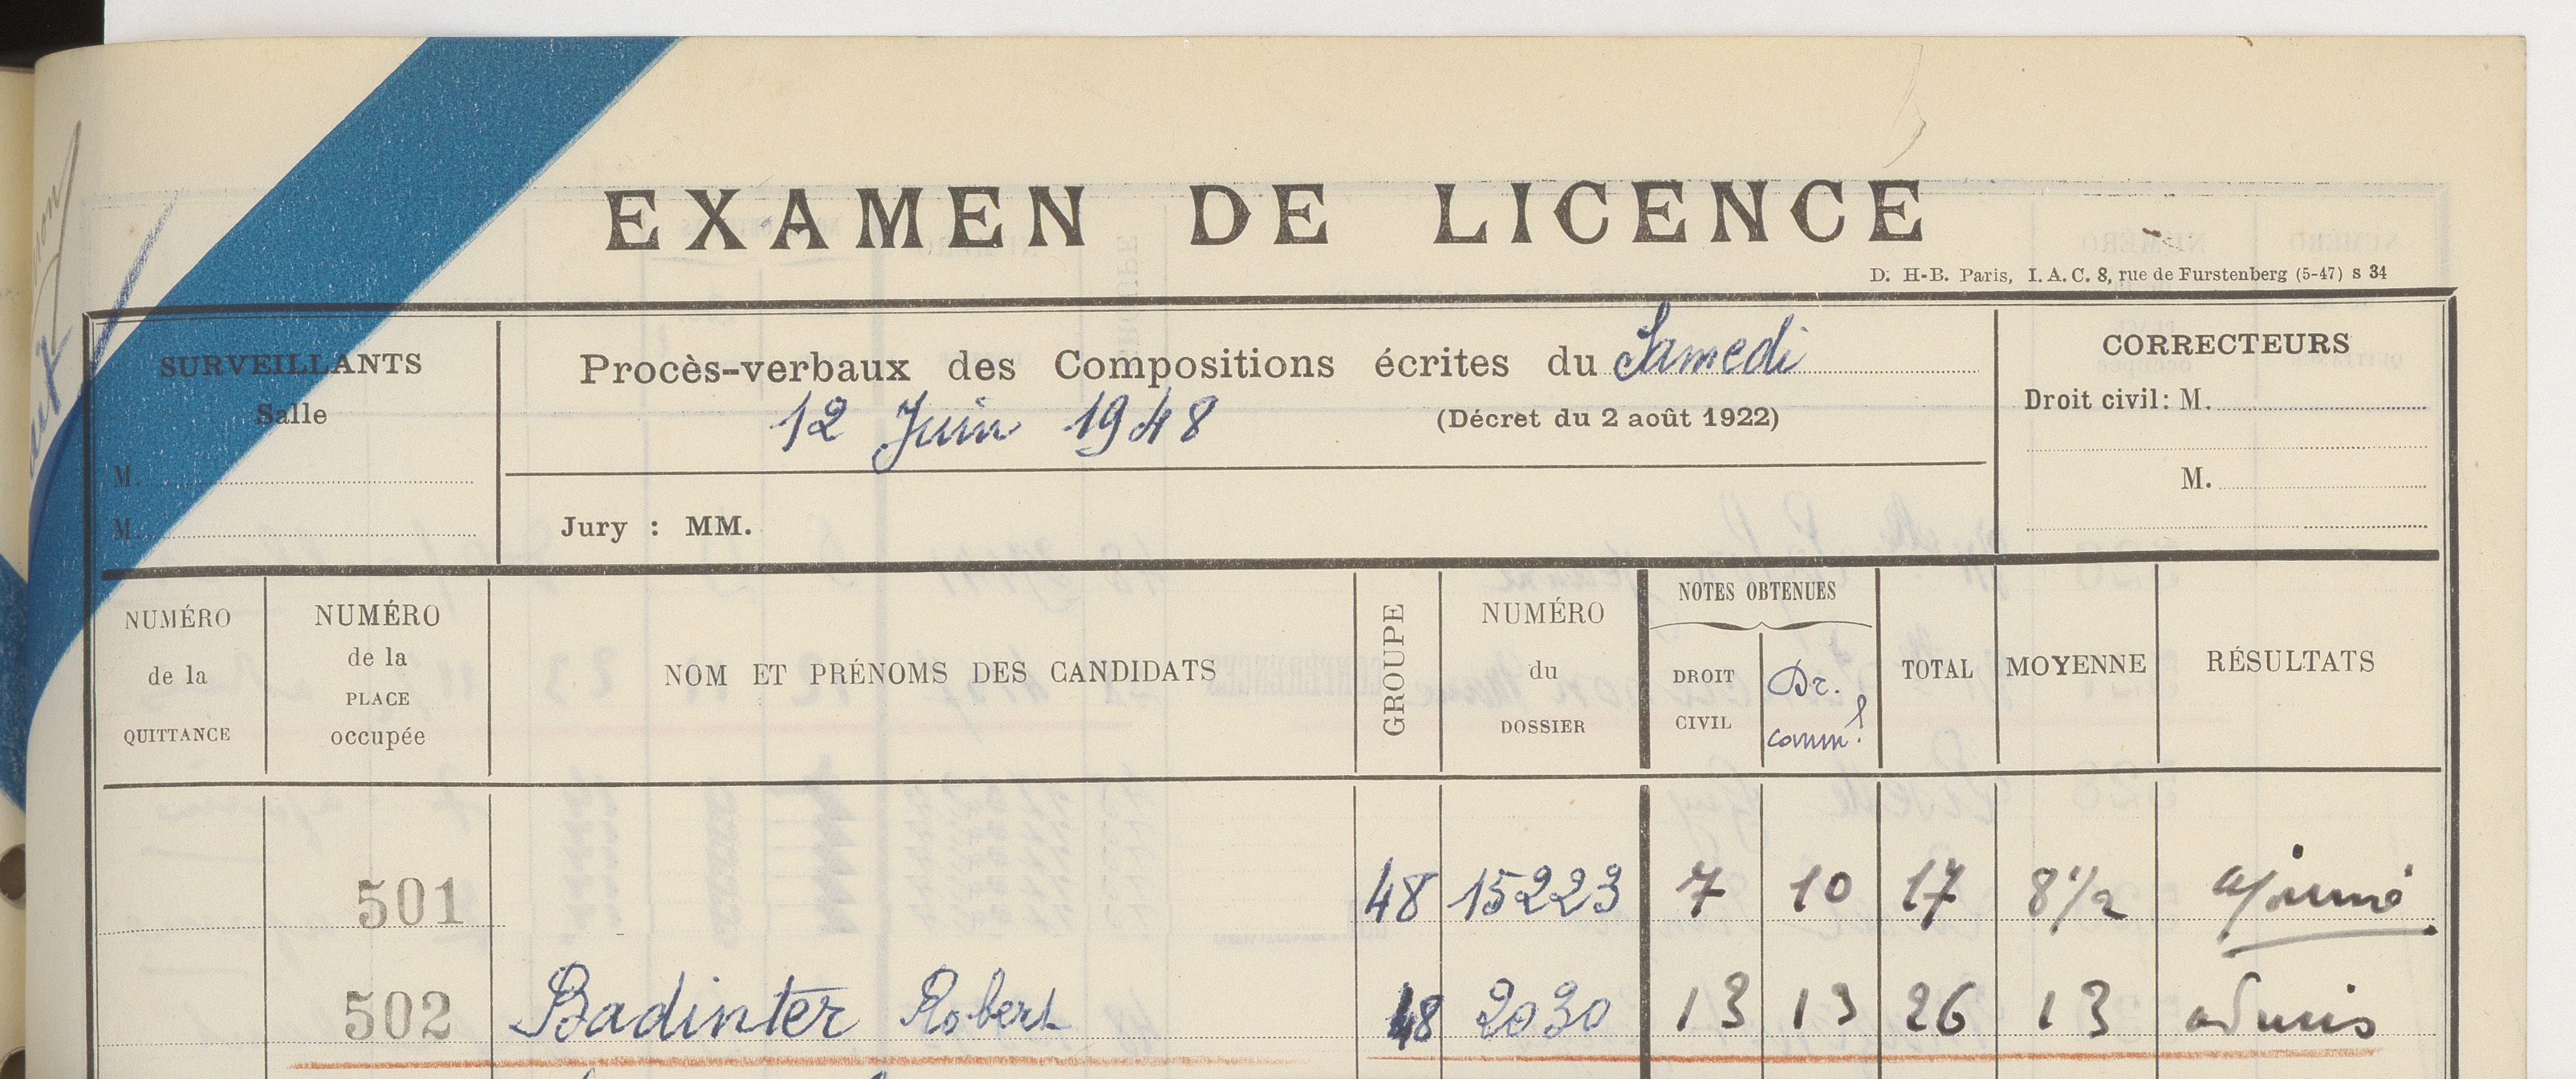 EXAMEN DE LICENCE
D. H-B. Paris, I.A.C. 8, rue de Furstenberg (5-47) s 34
SURVEILLANTS
Salle
M.
M.
Procès-verbaux des Compositions écrites du Samedi
12 Juin 1948
(Décret du 2 août 1922)
Jury : MM.
CORRECTEURS
Droit civil: M.
M.
NUMÉRO
de la
QUITTANCE
NUMÉRO
de la
PLACE
occupée
NOM ET PRÉNOMS DES CANDIDATS
GROUPE
NUMÉRO
du
DOSSIER
NOTES OBTENUES
DROIT
CIVIL
Dr.
comml
TOTAL
MOYENNE
RÉSULTATS
501 48 15223 7 10 17 8 1/2 ajourné
502 Badinter Robert 48 2030 13 13 26 13 admis